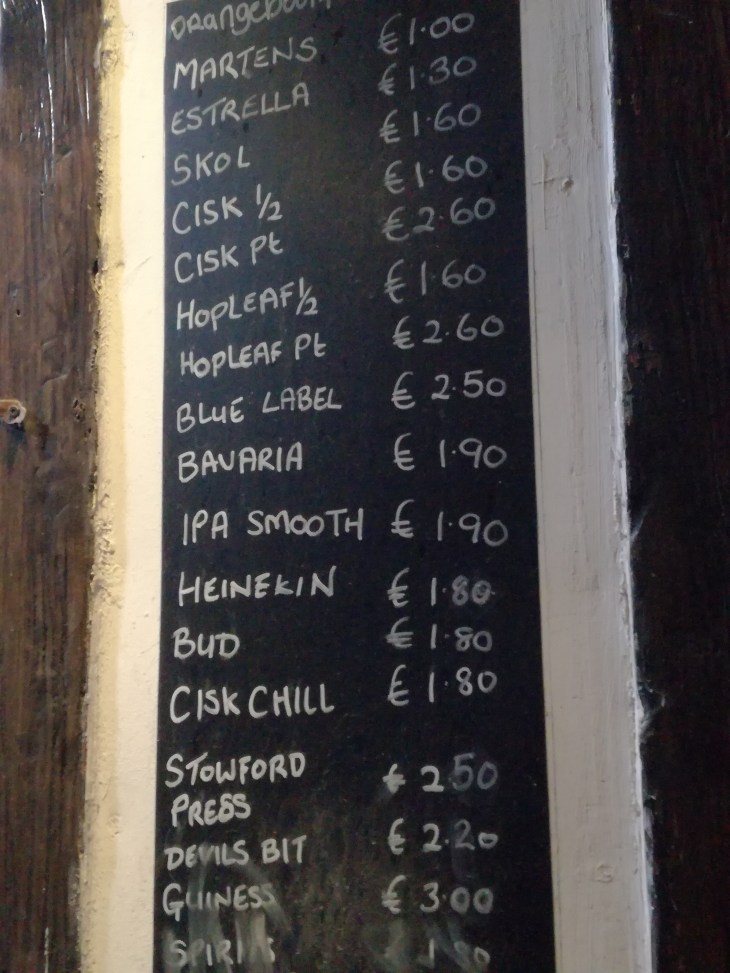 MARTENS €1.00
ESTRELLA €1.30
SKOL €1.60
CISK 1/2 €1.60
CISK Pt €2.60
HOPLEAF 1/2 €1.60
HOPLEAF Pt €2.60
BLUE LABEL €2.50
BAVARIA €1.90
IPA SMOOTH €1.90
HEINEKIN €1.80
BUD €1.80
CISK CHILL €1.80
STOWFORD €2.50
PRESS
DEVILS BIT €2.20
GUINESS €3.00